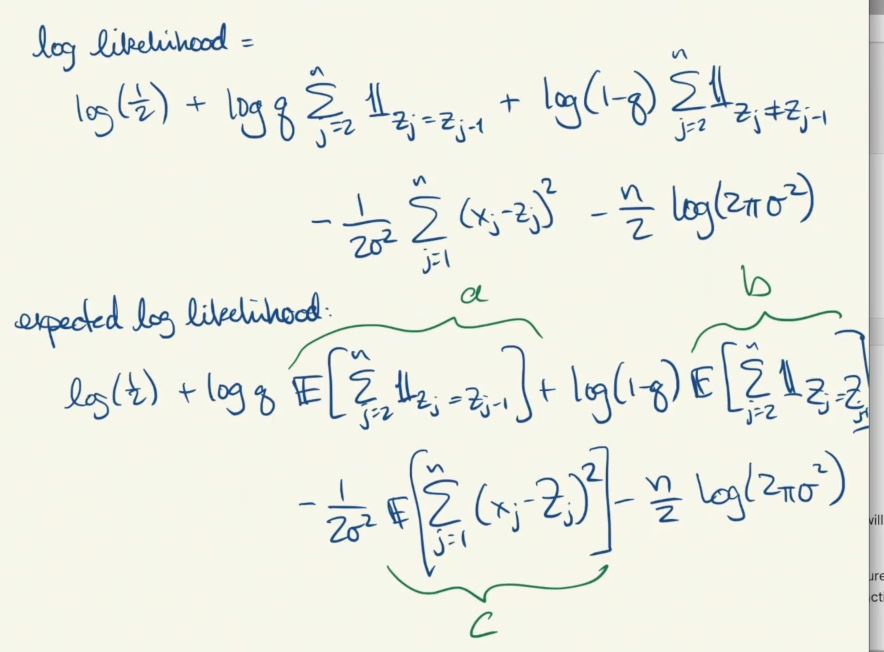 log likelihood =
log(1/2) + log q ∑_{j=2}^{n} 𝟙_{z_j = z_{j-1}} + log(1-q) ∑_{j=2}^{n} 𝟙_{z_j ≠ z_{j-1}}
- 1/(2σ²) ∑_{j=1}^{n} (x_j - z_j)² - n/2 log(2πσ²)
a b
expected log likelihood:
log(1/2) + log q 𝔼[∑_{j=2}^{n} 𝟙_{z_j = z_{j-1}}] + log(1-q) 𝔼[∑_{j=2}^{n} 𝟙_{Z_j = Z_{j-1}}]
- 1/(2σ²) 𝔼[∑_{j=1}^{n} (x_j - Z_j)²] - n/2 log(2πσ²)
c
will
ure
cti